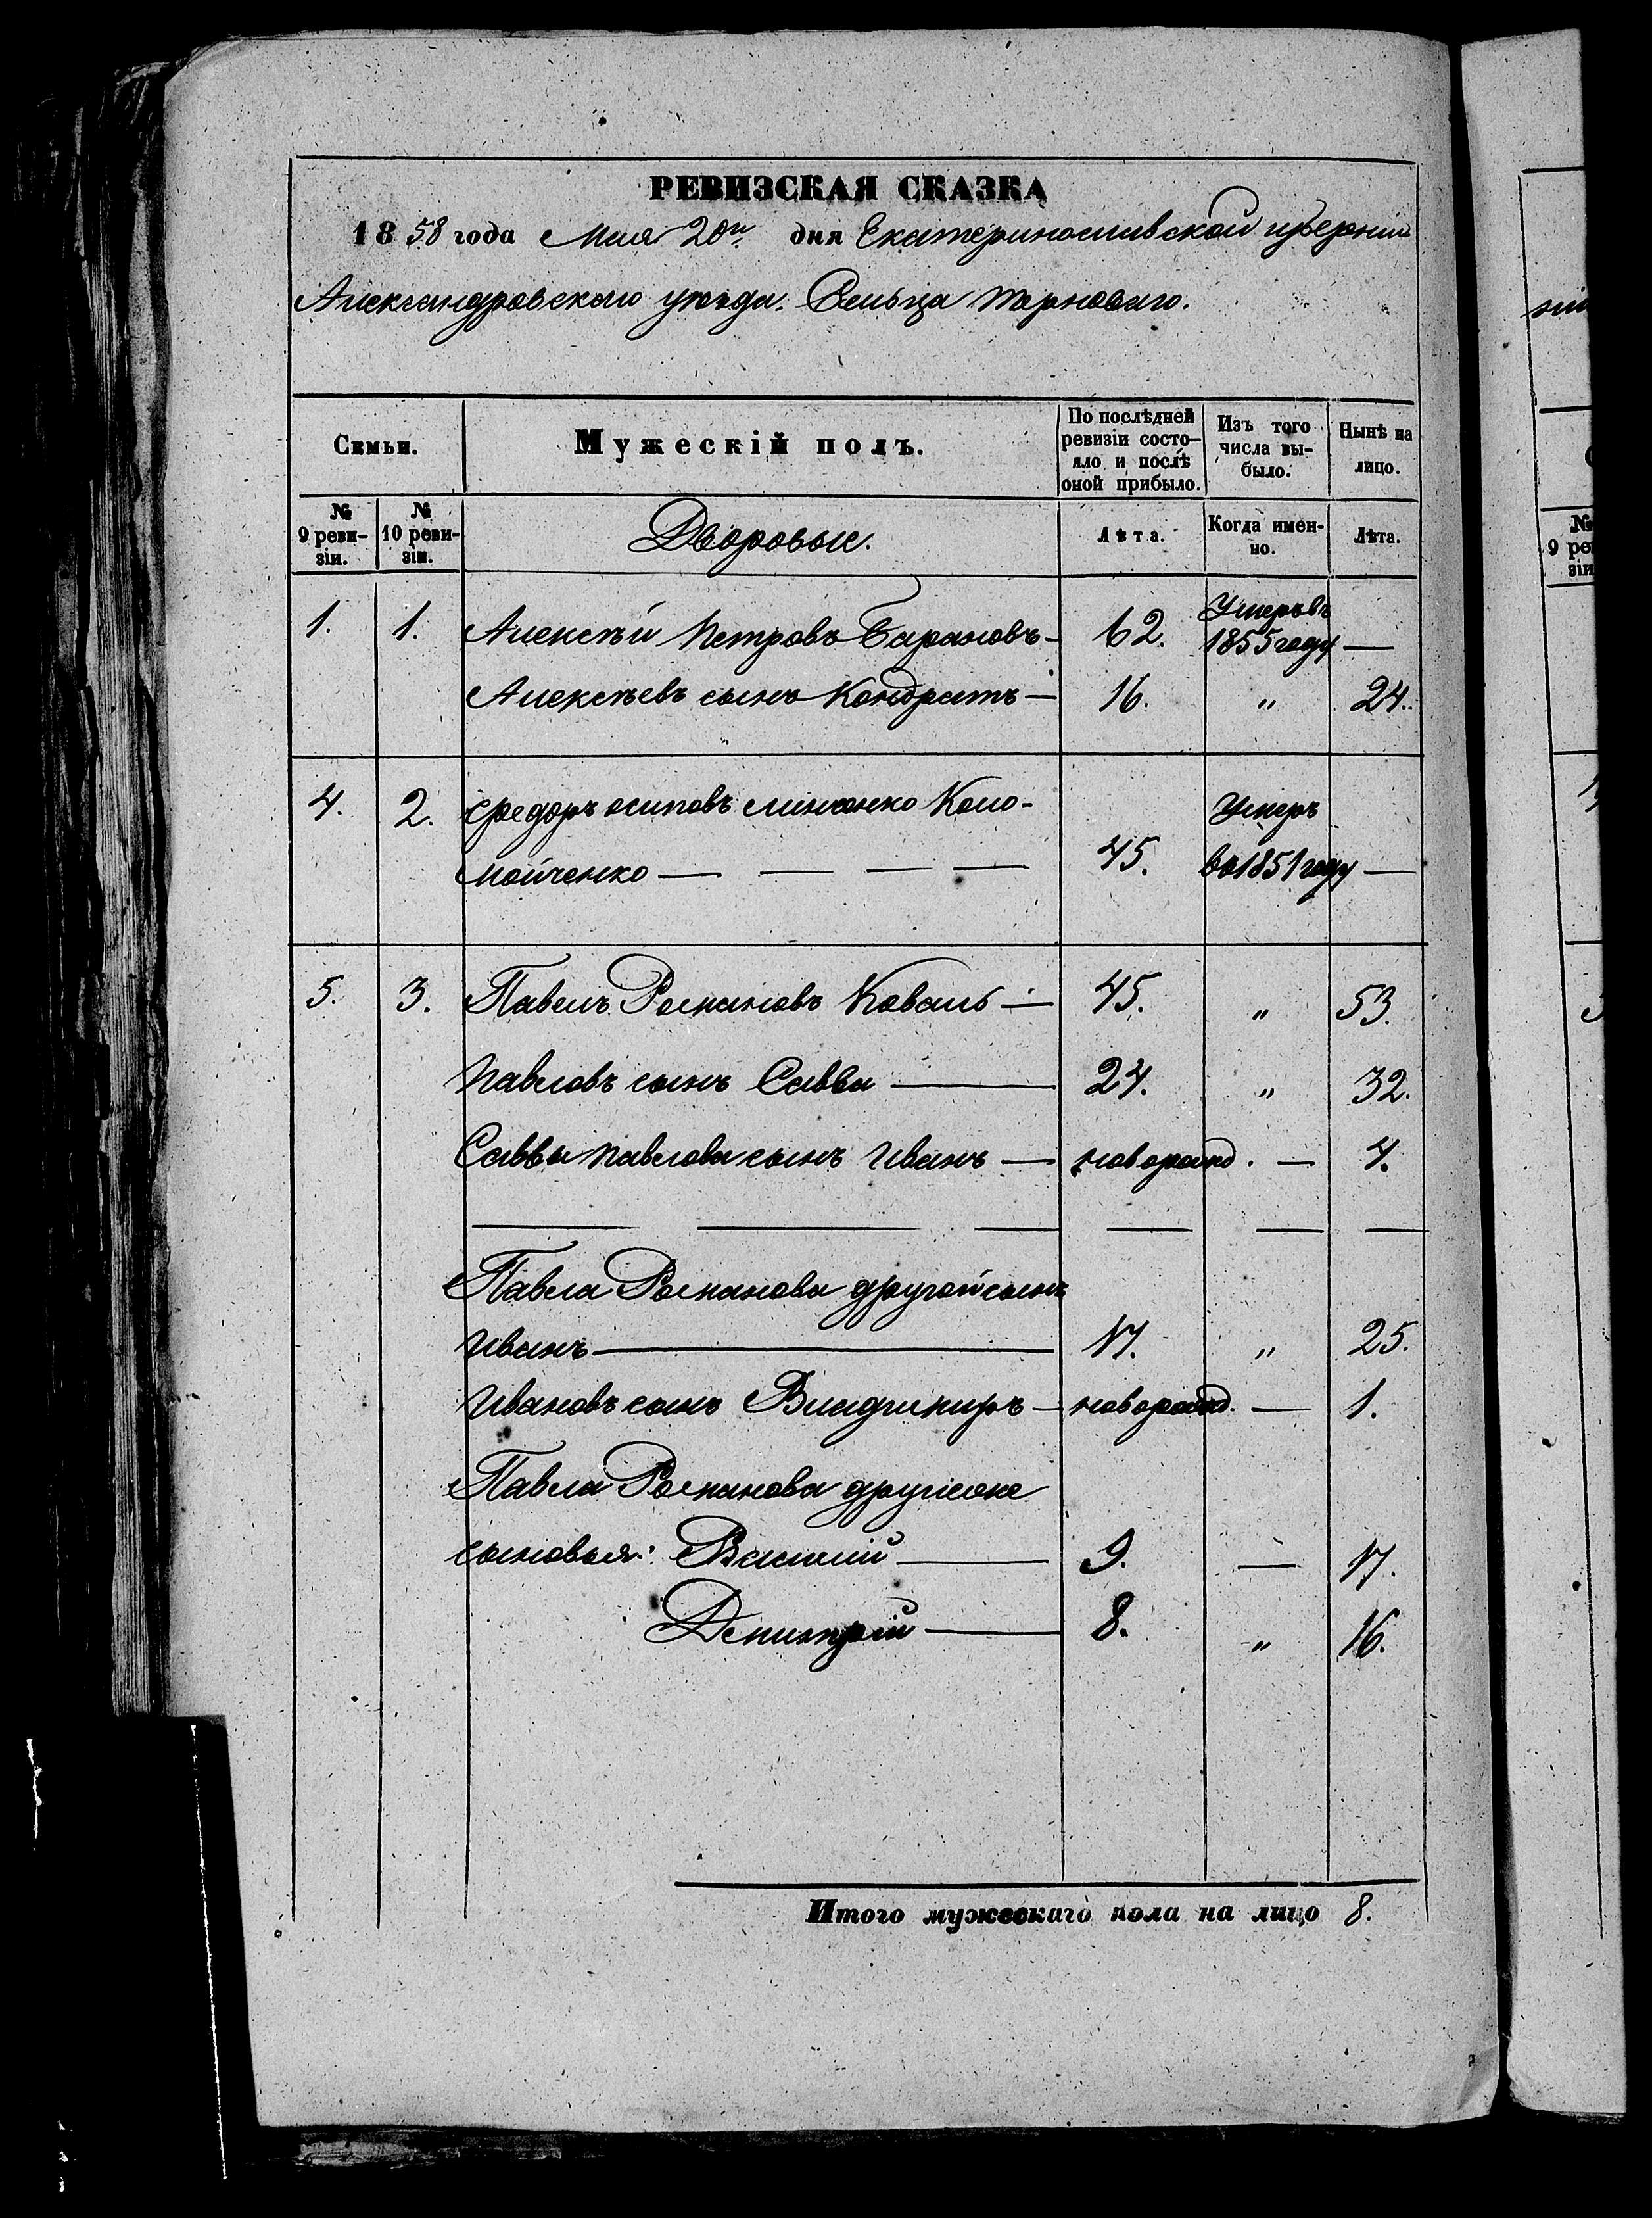 РЕВИЗСКАЯ СКАЗКА
1858 года Мая 20го дня Екатеринославской губернии
Александровского уѣзда. Сельца Терноваго.
Семьи. Мужескій полъ. По послѣдней ревизіи состояло и послѣ оной прибыло. Изъ того числа выбыло. Нынѣ на лицо.
№ 9 ревизіи. № 10 ревизіи. Дворовые. Лѣта. Когда именно. Лѣта.
1. 1. Алексѣй Петровъ Барановъ — 62. Умеръ въ 1855 году —
Алексѣевъ сынъ Кондратъ — 16. " 24.
4. 2. Федоръ Осиповъ Коло-
мойченко — — — 45. Умеръ въ 1851 году —
5. 3. Павелъ Романовъ Коваль — 45. " 53.
Павловъ сынъ Савва — 24. " 32.
Саввы Павлова сынъ Иванъ — новорожд. — 4.
Павла Романова другой сынъ
Иванъ — 17. " 25.
Ивановъ сынъ Владимиръ — новорожд. — 1.
Павла Романова другіе
сыновья: Василий — 9. — 17.
Демитрій — 8. " 16.
Итого мужескаго пола на лицо 8.
№
9 реви
зіи